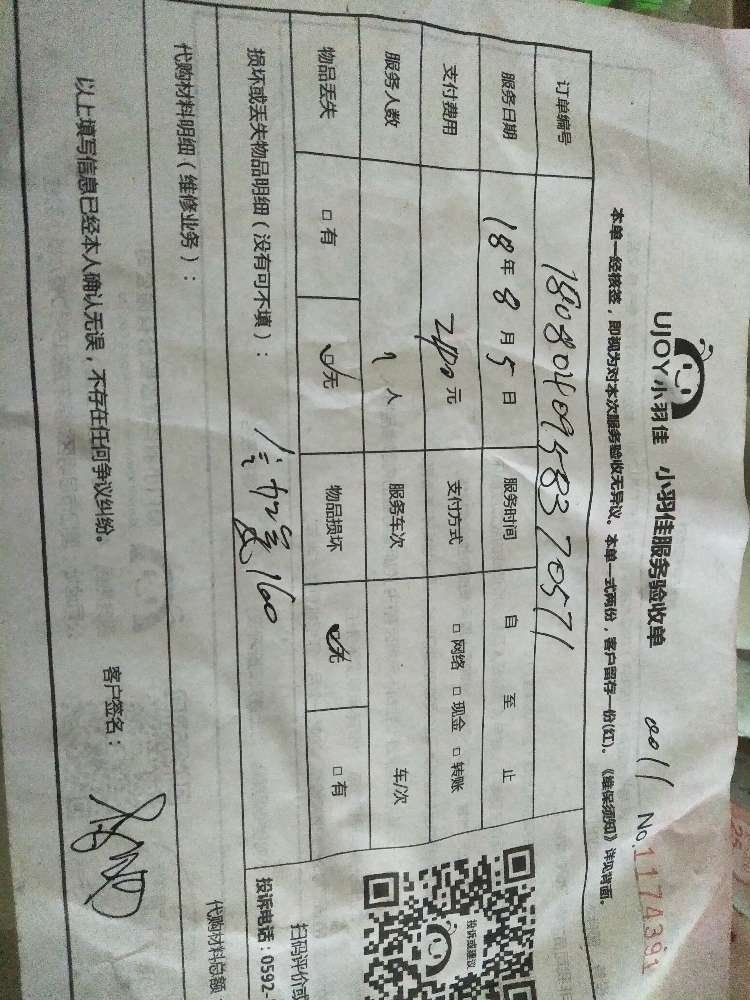 UJOY小羽佳 小羽佳服务验收单
0011 No.1174391
本单一经核签，即视为对本次服务验收无异议。本单一式两份，客户留存一份(红)。《维保须知》详见背面。
订单编号 1808040958370571
服务日期 18年8月5日 服务时间 自 至 止
支付费用 2400元 支付方式 □网络 □现金 □转账
服务人数 1人 服务车次 车/次
物品丢失 □有 ☑无 物品损坏 ☑无 □有
损坏或丢失物品明细（没有可不填）：
160
代购材料明细（维修业务）：
代购材料总额
以上填写信息已经本人确认无误，不存在任何争议纠纷。 客户签名：
投诉或建议
扫码评价或
投诉电话：0592-